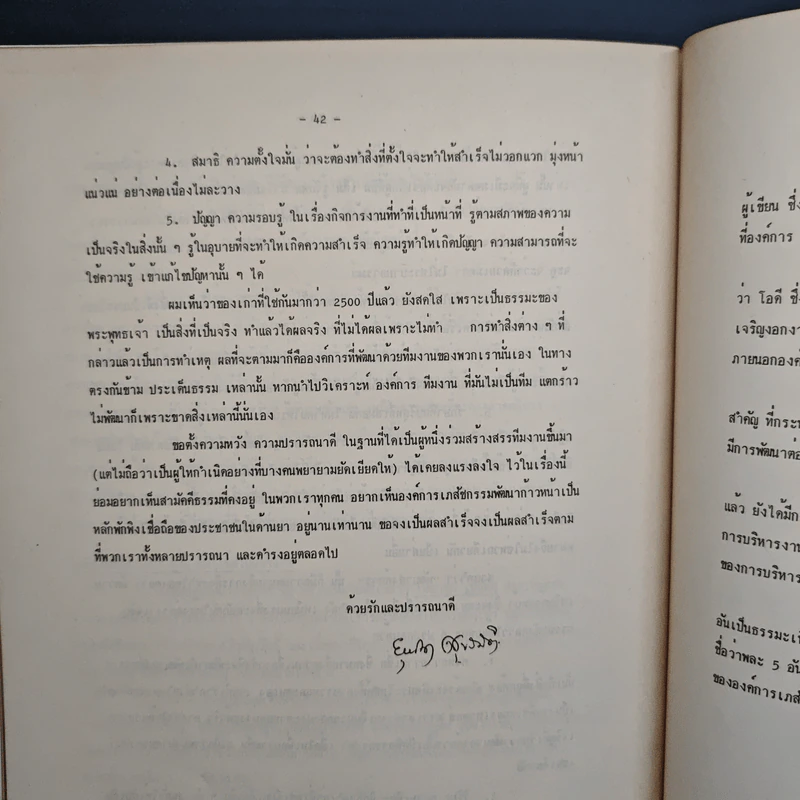 - 42 -
4. สมาธิ ความตั้งใจมั่น ว่าจะต้องทำสิ่งที่ตั้งใจจะทำให้สำเร็จไม่วอกแวก มุ่งหน้า
แน่วแน่ อย่างต่อเนื่องไม่ละวาง
5. ปัญญา ความรอบรู้ ในเรื่องกิจการงานที่ทำที่เป็นหน้าที่ รู้ตามสภาพของความ
เป็นจริงในสิ่งนั้น ๆ รู้ในอุบายที่จะทำให้เกิดความสำเร็จ ความรู้ทำให้เกิดปัญญา ความสามารถที่จะ
ใช้ความรู้ เข้าแก้ไขปัญหานั้น ๆ ได้
ผมเห็นว่าของเก่าที่ใช้กันมากว่า 2500 ปีแล้ว ยังสดใส เพราะเป็นธรรมะของ
พระพุทธเจ้า เป็นสิ่งที่เป็นจริง ทำแล้วได้ผลจริง ที่ไม่ได้ผลเพราะไม่ทำ การทำสิ่งต่าง ๆ ที่
กล่าวแล้วเป็นการทำเหตุ ผลที่จะตามมาก็คือองค์การที่พัฒนาด้วยทีมงานของพวกเรานั่นเอง ในทาง
ตรงกันข้าม ประเด็นธรรม เหล่านั้น หากนำไปวิเคราะห์ องค์การ ทีมงาน ที่มันไม่เป็นทีม แตกร้าว
ไม่พัฒนาก็เพราะขาดสิ่งเหล่านี้นั่นเอง
ขอตั้งความหวัง ความปรารถนาดี ในฐานที่ได้เป็นผู้หนึ่งร่วมสร้างสรรทีมงานขึ้นมา
(แต่ไม่ถือว่าเป็นผู้ให้กำเนิดอย่างที่บางคนพยายามยัดเยียดให้) ได้เคยลงแรงลงใจ ไว้ในเรื่องนี้
ย่อมอยากเห็นสามัคคีธรรมที่คงอยู่ ในพวกเราทุกคน อยากเห็นองค์การเภสัชกรรมพัฒนาก้าวหน้าเป็น
หลักพักพิงเชื่อถือของประชาชนในด้านยา อยู่นานเท่านาน ขอจงเป็นผลสำเร็จจงเป็นผลสำเร็จตาม
ที่พวกเราทั้งหลายปรารถนา และดำรงอยู่ตลอดไป
ด้วยรักและปรารถนาดี
ผู้เขียน ซึ่
ที่องค์การ
ว่า โอดี ซึ่
เจริญงอกงา
ภายนอกองค์
สำคัญ ที่กระท
มีการพัฒนาต่อ
แล้ว ยังได้มีก
การบริหารงาน
ของการบริหาร
อันเป็นธรรมะเ
ชื่อว่าพละ 5 อัน
ขององค์การเภสั